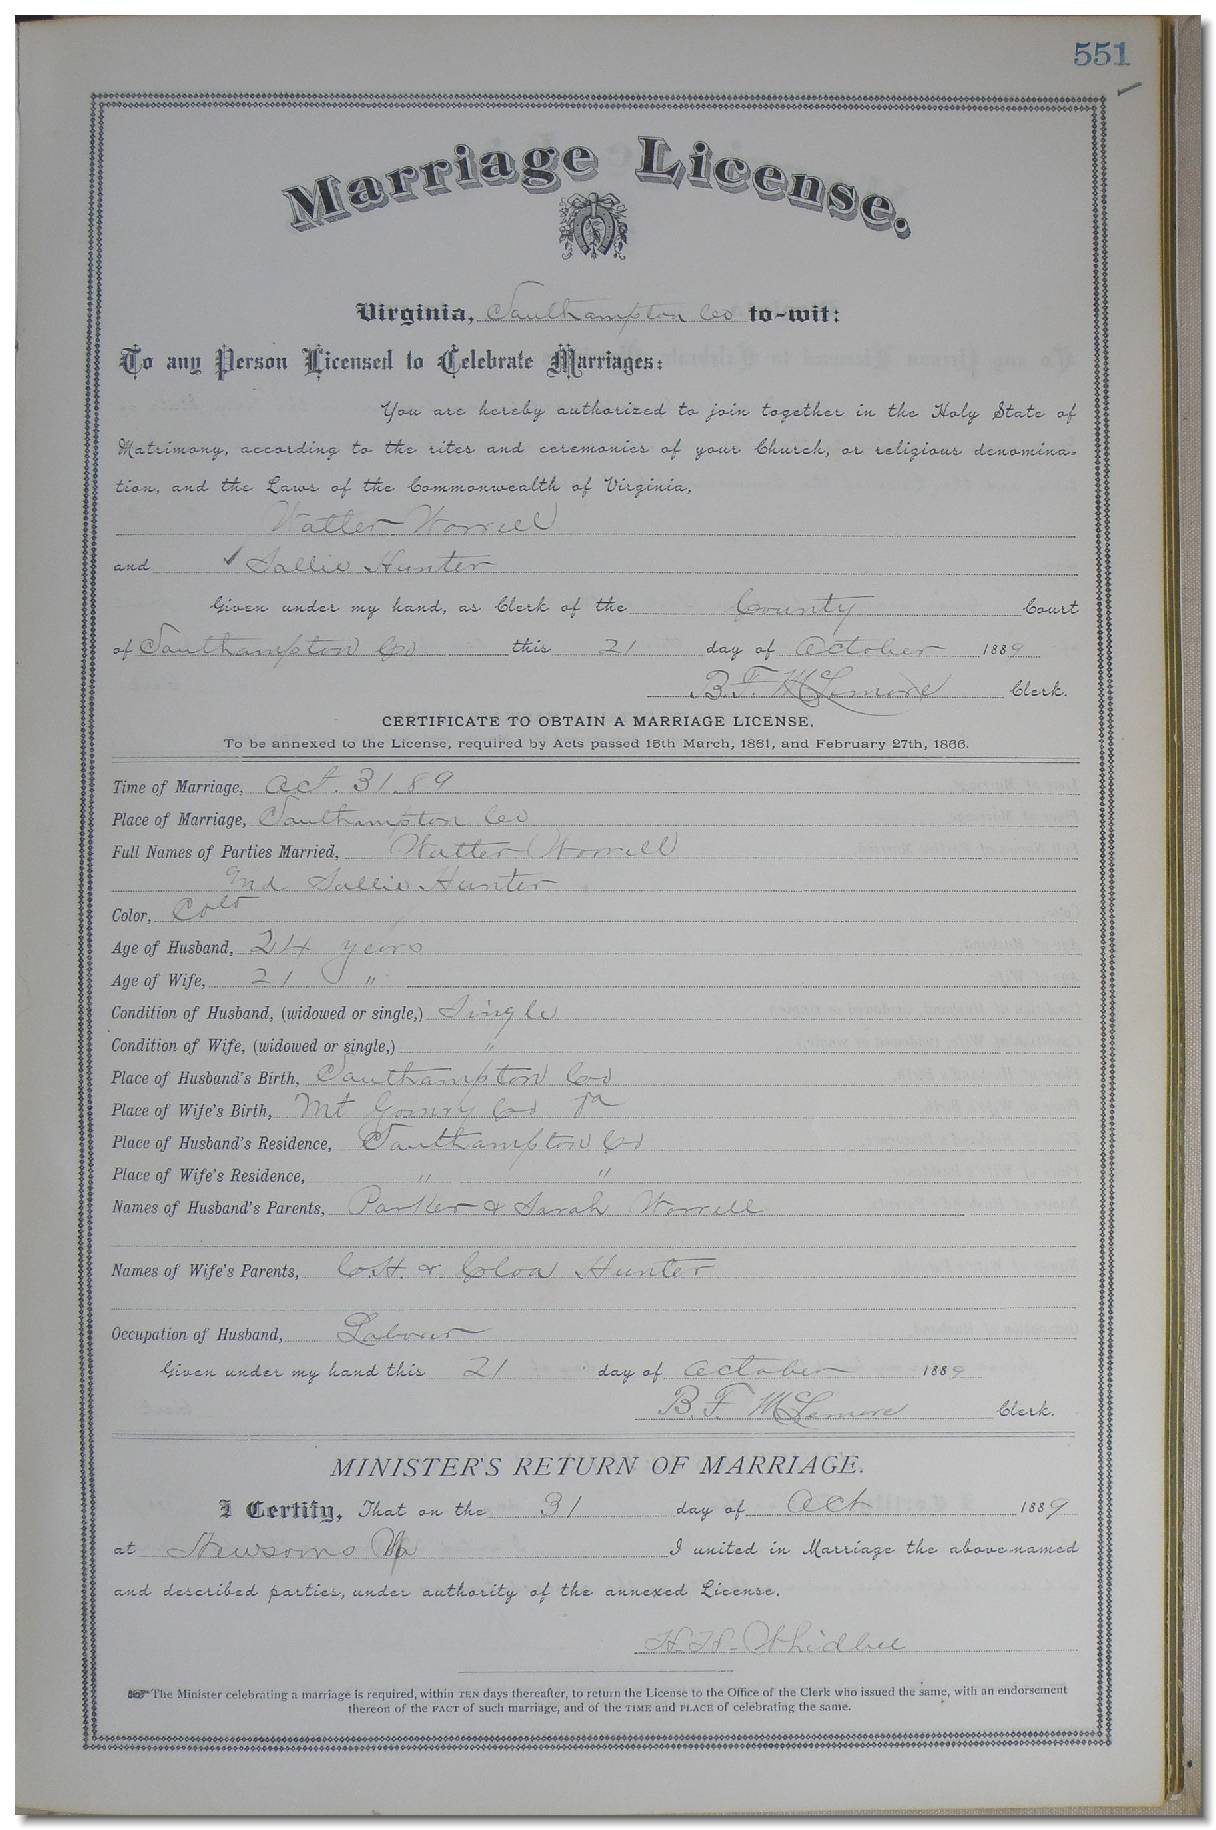 551
Marriage License.
Virginia, Southampton Co to-wit:
To any Person Licensed to Celebrate Marriages:
You are hereby authorized to join together in the Holy State of
Matrimony, according to the rites and ceremonies of your Church, or religious denomina-
tion, and the Laws of the Commonwealth of Virginia,
Walter Worrell
and Sallie Hunter
Given under my hand, as Clerk of the County Court
of Southampton Co this 21 day of October 1889
B. F. McLemore Clerk.
CERTIFICATE TO OBTAIN A MARRIAGE LICENSE,
To be annexed to the License, required by Acts passed 15th March, 1861, and February 27th, 1866.
Time of Marriage, Oct. 31. 89
Place of Marriage, Southampton Co
Full Names of Parties Married, Walter Worrell
and Sallie Hunter
Color, Cold
Age of Husband, 24 years
Age of Wife, 21 "
Condition of Husband, (widowed or single,) Single
Condition of Wife, (widowed or single,) "
Place of Husband's Birth, Southampton Co
Place of Wife's Birth, Mt Gomry Co Va
Place of Husband's Residence, Southampton Co
Place of Wife's Residence, " "
Names of Husband's Parents, Parker & Sarah Worrell
Names of Wife's Parents, C.H. & Cloa Hunter
Occupation of Husband, Labour
Given under my hand this 21 day of October 1889
B. F. McLemore Clerk.
MINISTER'S RETURN OF MARRIAGE.
I Certify, That on the 31 day of Oct 1889
at Newsoms Va I united in Marriage the above-named
and described parties, under authority of the annexed License.
H. H.
The Minister celebrating a marriage is required, within TEN days thereafter, to return the License to the Office of the Clerk who issued the same, with an endorsement
thereon of the FACT of such marriage, and of the TIME and PLACE of celebrating the same.